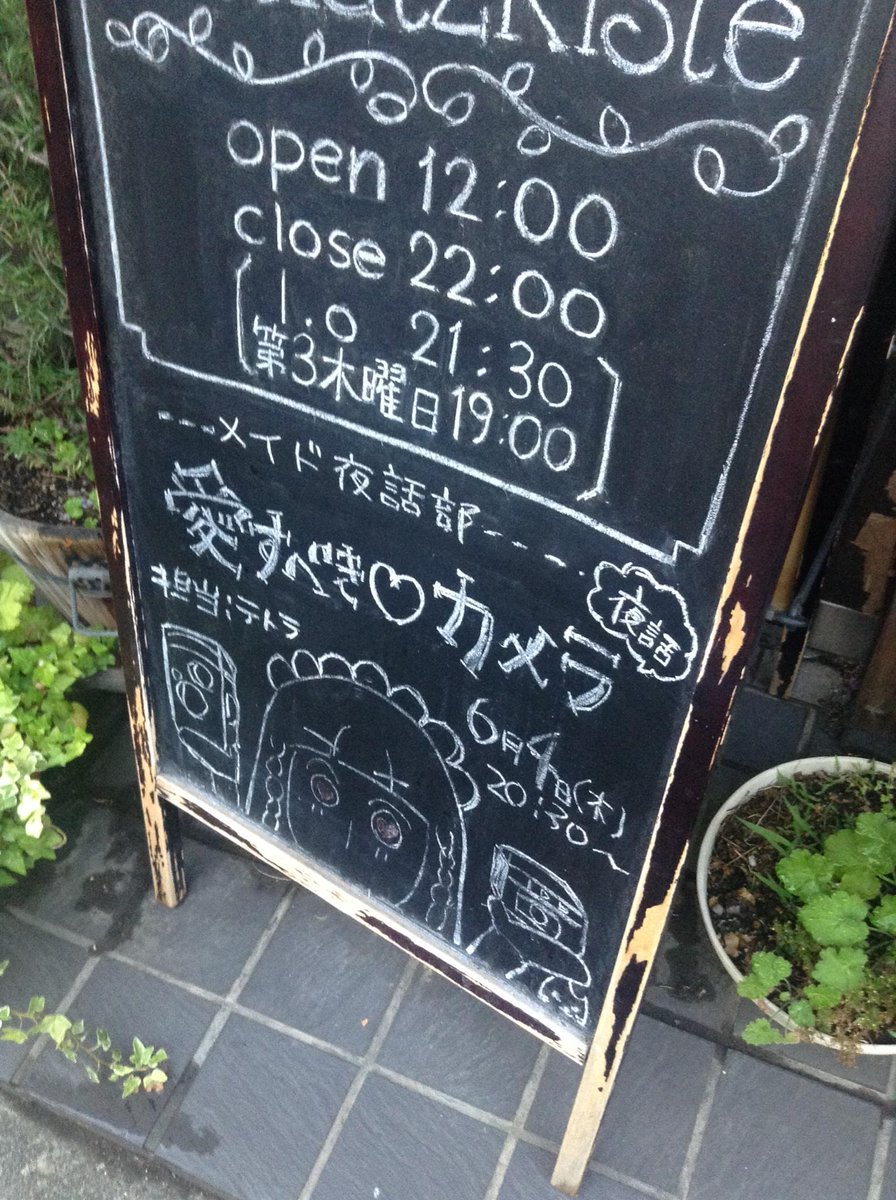 open 12:00
close 22:00
l.o 21:30
第3木曜日19:00
---メイド夜話部---
愛すべき♡カメラ
夜話
担当:テトラ
6月4日(木)
20:30〜